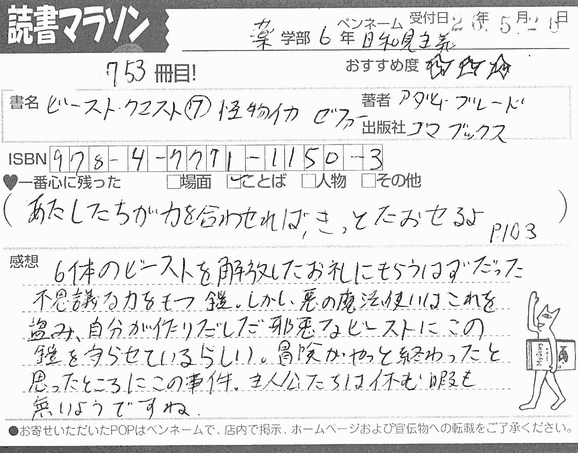 読書マラソン
薬学部6年 ペンネーム 日和見主義 受付日 26年5月28日
753冊目! おすすめ度 ☆☆☆
書名 ビースト・クエスト⑦ 怪物イカ ゼファー 著者 アダム・ブレード
出版社 ゴマブックス
ISBN 978-4-7771-1150-3
♥一番心に残った □場面 ☑ことば □人物 □その他
(あたしたちが力を合わせれば、きっとたおせるよ P103)
感想 6体のビーストを解放したお礼にもらうはずだった
不思議な力をもつ鎧。しかし、悪の魔法使いはこれを
盗み、自分が作りだしだ邪悪なビーストにこの
鎧を守らせているらしい。冒険がやっと終わったと
思ったところにこの事件。主人公たちは休む暇も
無いようですね。
●お寄せいただいたPOPはペンネームで、店内で掲示、ホームページおよび宣伝物への転載をご了承ください。